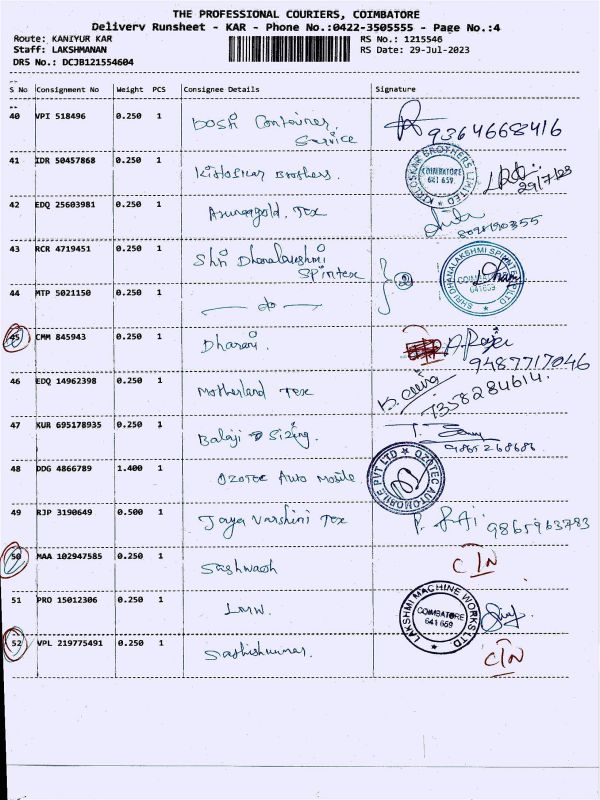 THE PROFESSIONAL COURIERS, COIMBATORE
Delivery Runsheet - KAR - Phone No.:0422-3505555 - Page No.:4
Route: KANIYUR KAR
RS No.: 1215546
Staff: LAKSHMANAN
RS Date: 29-Jul-2023
DRS No.: DCJB121554604
S No Consignment No Weight PCS Consignee Details Signature
40 VPI 518496 0.250 1 Dosh Container Service 9364668416
41 IDR 50457868 0.250 1 Kirloskar Brothers. KIRLOSKAR BROTHERS LIMITED COIMBATORE 641 659. 29/7/23
42 EDQ 25603981 0.250 1 Tex
43 RCR 4719451 0.250 1 Shri Dhanalakshmi Spintex 2 SHRI DHANALAKSHMI SPINTEX (P) LTD COIMBATORE 641659
44 MTP 5021150 0.250 1 — do —
45 CMM 845943 0.250 1 Dharani. 9487717046
46 EDQ 14962398 0.250 1 Motherland Tex 7358284614.
47 KUR 695178935 0.250 1 Balaji Sizing.
48 DDG 4866789 1.400 1 Ozotec Auto Mobile OZOTEC AUTOMOBILE PVT LTD
49 RJP 3190649 0.500 1 Jaya Varshini Tex 9865963783
50 MAA 102947585 0.250 1 Sashwath CIN
51 PRO 15012306 0.250 1 LMW. LAKSHMI MACHINE WORKS LTD. COIMBATORE 641 659
52 VPL 219775491 0.250 1 Sathishkumar. CIN